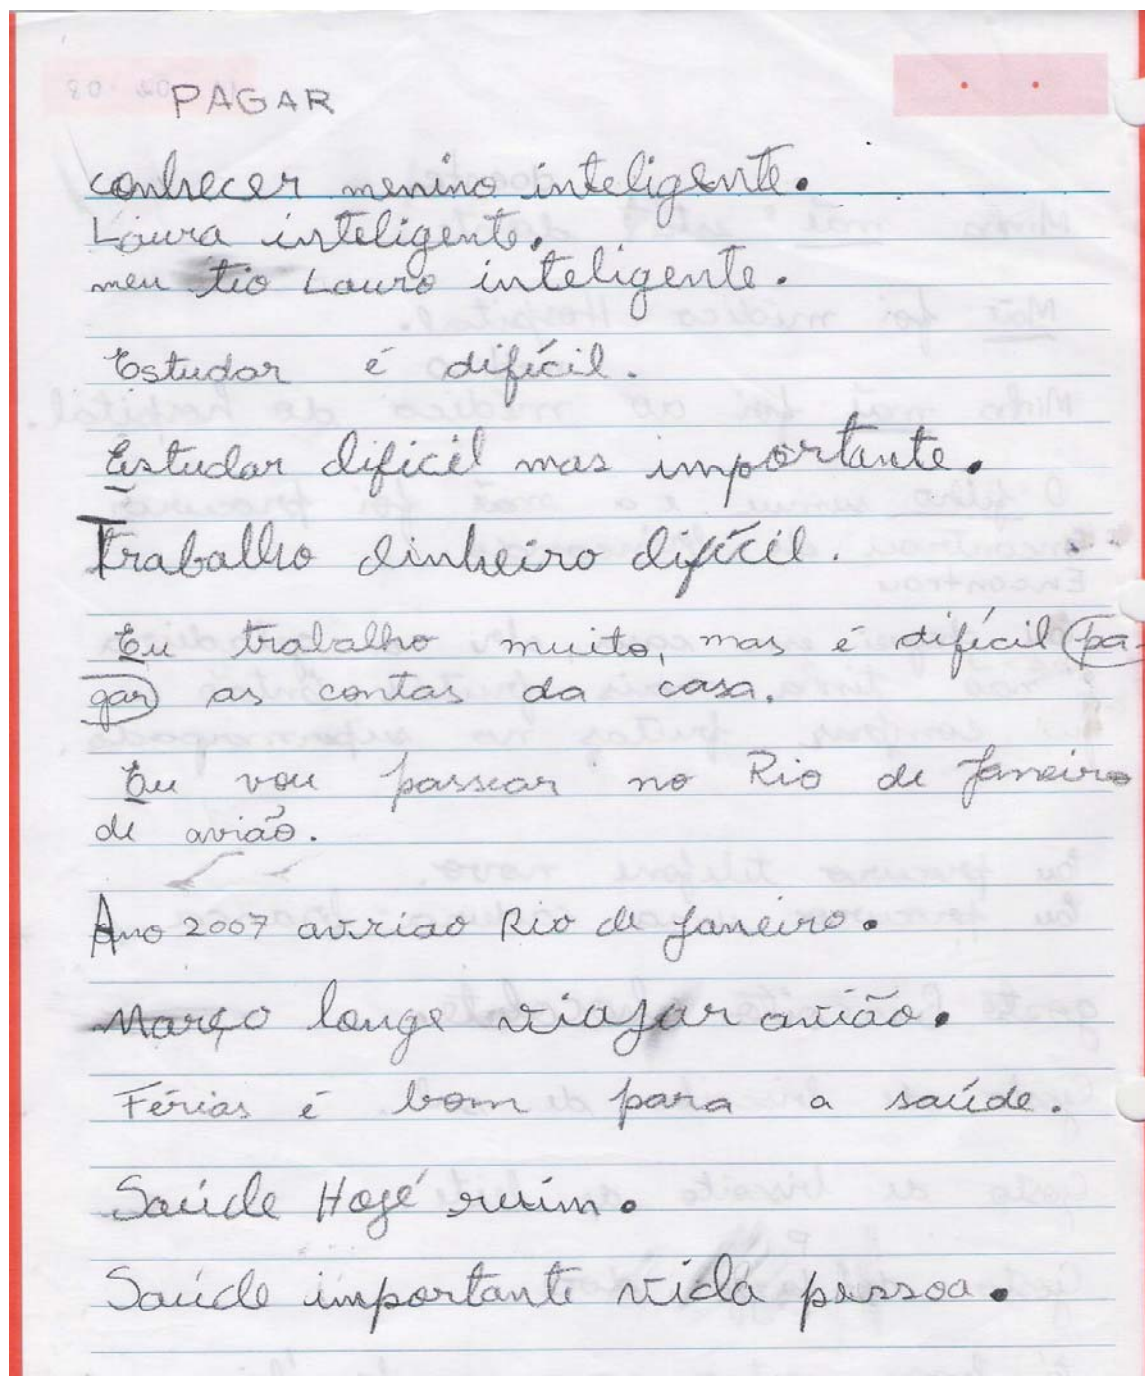 PAGAR
conhecer menino inteligente.
Laura inteligente.
meu tio Lauro inteligente.
Estudar é difícil.
Estudar dificil mas importante.
Trabalho dinheiro difícil.
Eu trabalho muito, mas é difícil pa-
gar as contas da casa.
Eu vou passear no Rio de Janeiro
de avião.
Ano 2007 avriao Rio de Janeiro.
Março longe viajar avião.
Férias é bom para a saúde.
Saúde Hojé ruim.
Saúde importante vida pessoa.